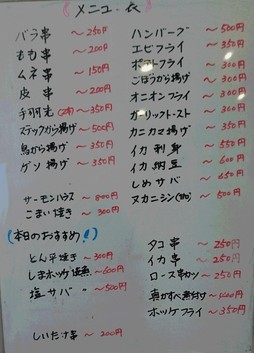 メニュー表
バラ串 〜250円
もも串 〜200円
ムネ串 〜150円
皮串 〜200円
手羽先(2本) 〜350円
スティックから揚げ 〜500円
鳥から揚げ 〜350円
ゲソ揚げ 〜350円
サーモンハラス 〜800円
こまい焼き 〜300円
(本日のおすすめ!)
とん平焼き 〜300円
しまホッケ塩焼 〜600円
塩サバ 〜500円
しいたけ串 〜200円
ハンバーグ 〜500円
エビフライ 〜350円
ポテトフライ 〜300円
ごぼうから揚げ 〜300円
オニオンフライ 〜300円
ガーリックトースト 〜300円
カニカマ揚げ 〜350円
イカ刺身 〜550円
イカ納豆 〜600円
しめサバ 〜650円
タコ串 〜250円
イカ串 〜250円
ロース串カツ 〜250円
真かすべ煮付け 〜400円
ホッケフライ 〜350円